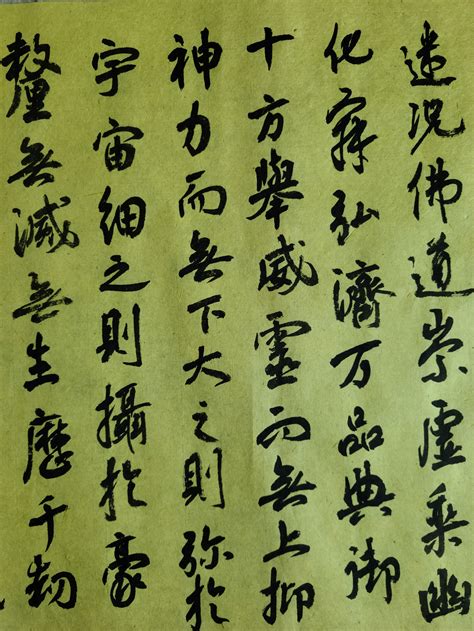 遺況佛道崇虛乘幽
控寂弘濟万品典御
十方舉威靈而無上抑
神力而無下大之則弥於
宇宙細之則攝於豪
釐無滅無生歷千劫